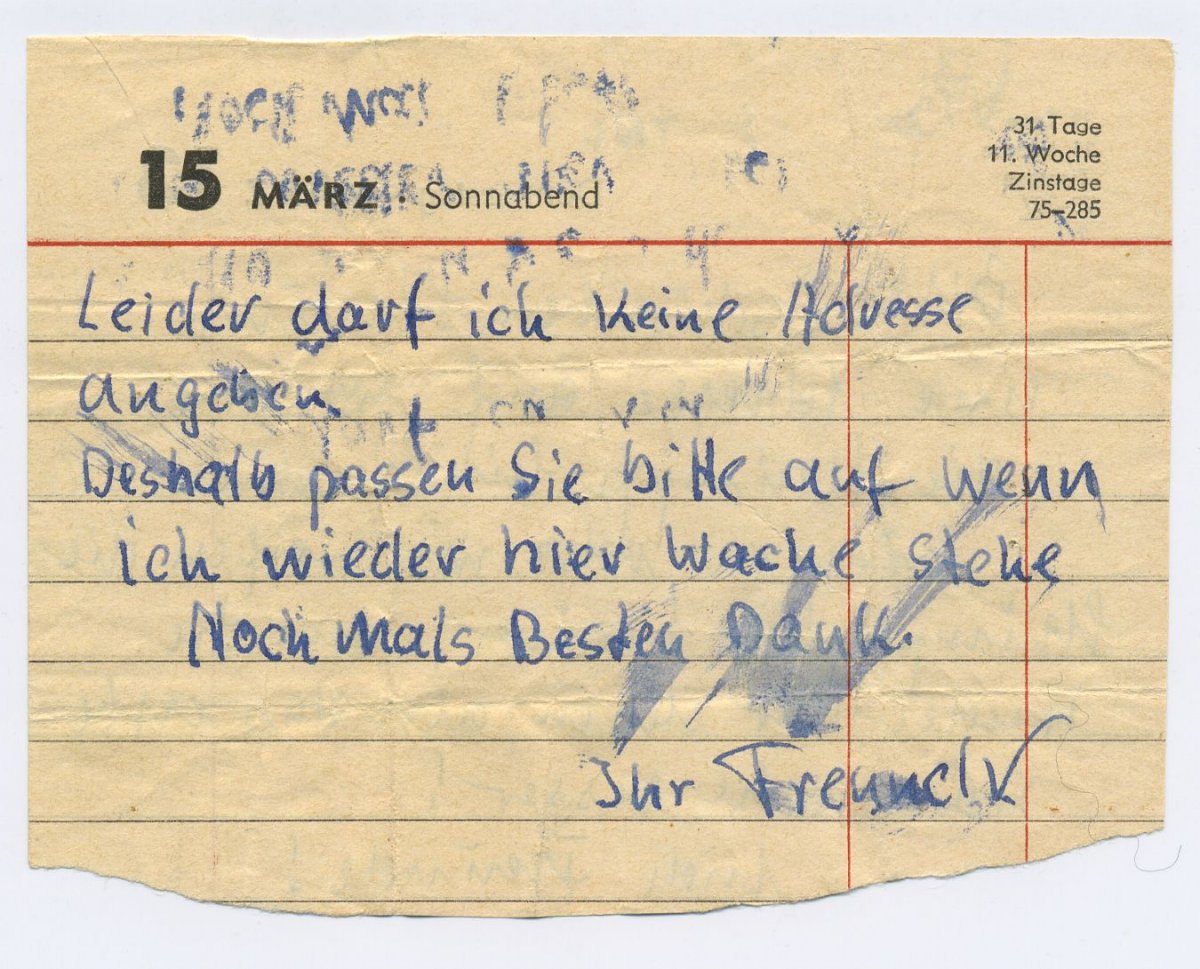 31 Tage
11. Woche
Zinstage
75–285
15 MÄRZ · Sonnabend
Leider darf ich keine Adresse
angeben.
Deshalb passen Sie bitte auf wenn
ich wieder hier Wache stehe
Noch mals Besten Dank.
Ihr Freund